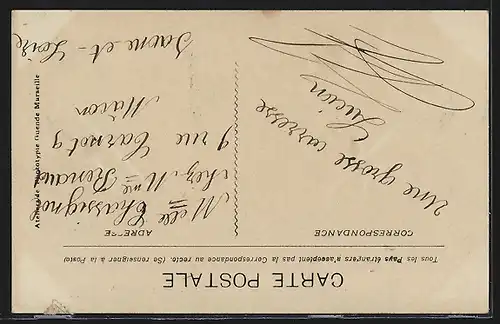 CARTE POSTALE
Tous les Pays étrangers n'acceptent pas la Correspondance au recto. (Se renseigner à la Poste)
CORRESPONDANCE
Une grosse caresse
Lucien
ADRESSE
Melle Chassigno
chez Mme Renaud
9 rue Carnot 9
Mâcon
Saone et - Loire
Ateliers de Phototypie Guende Marseille